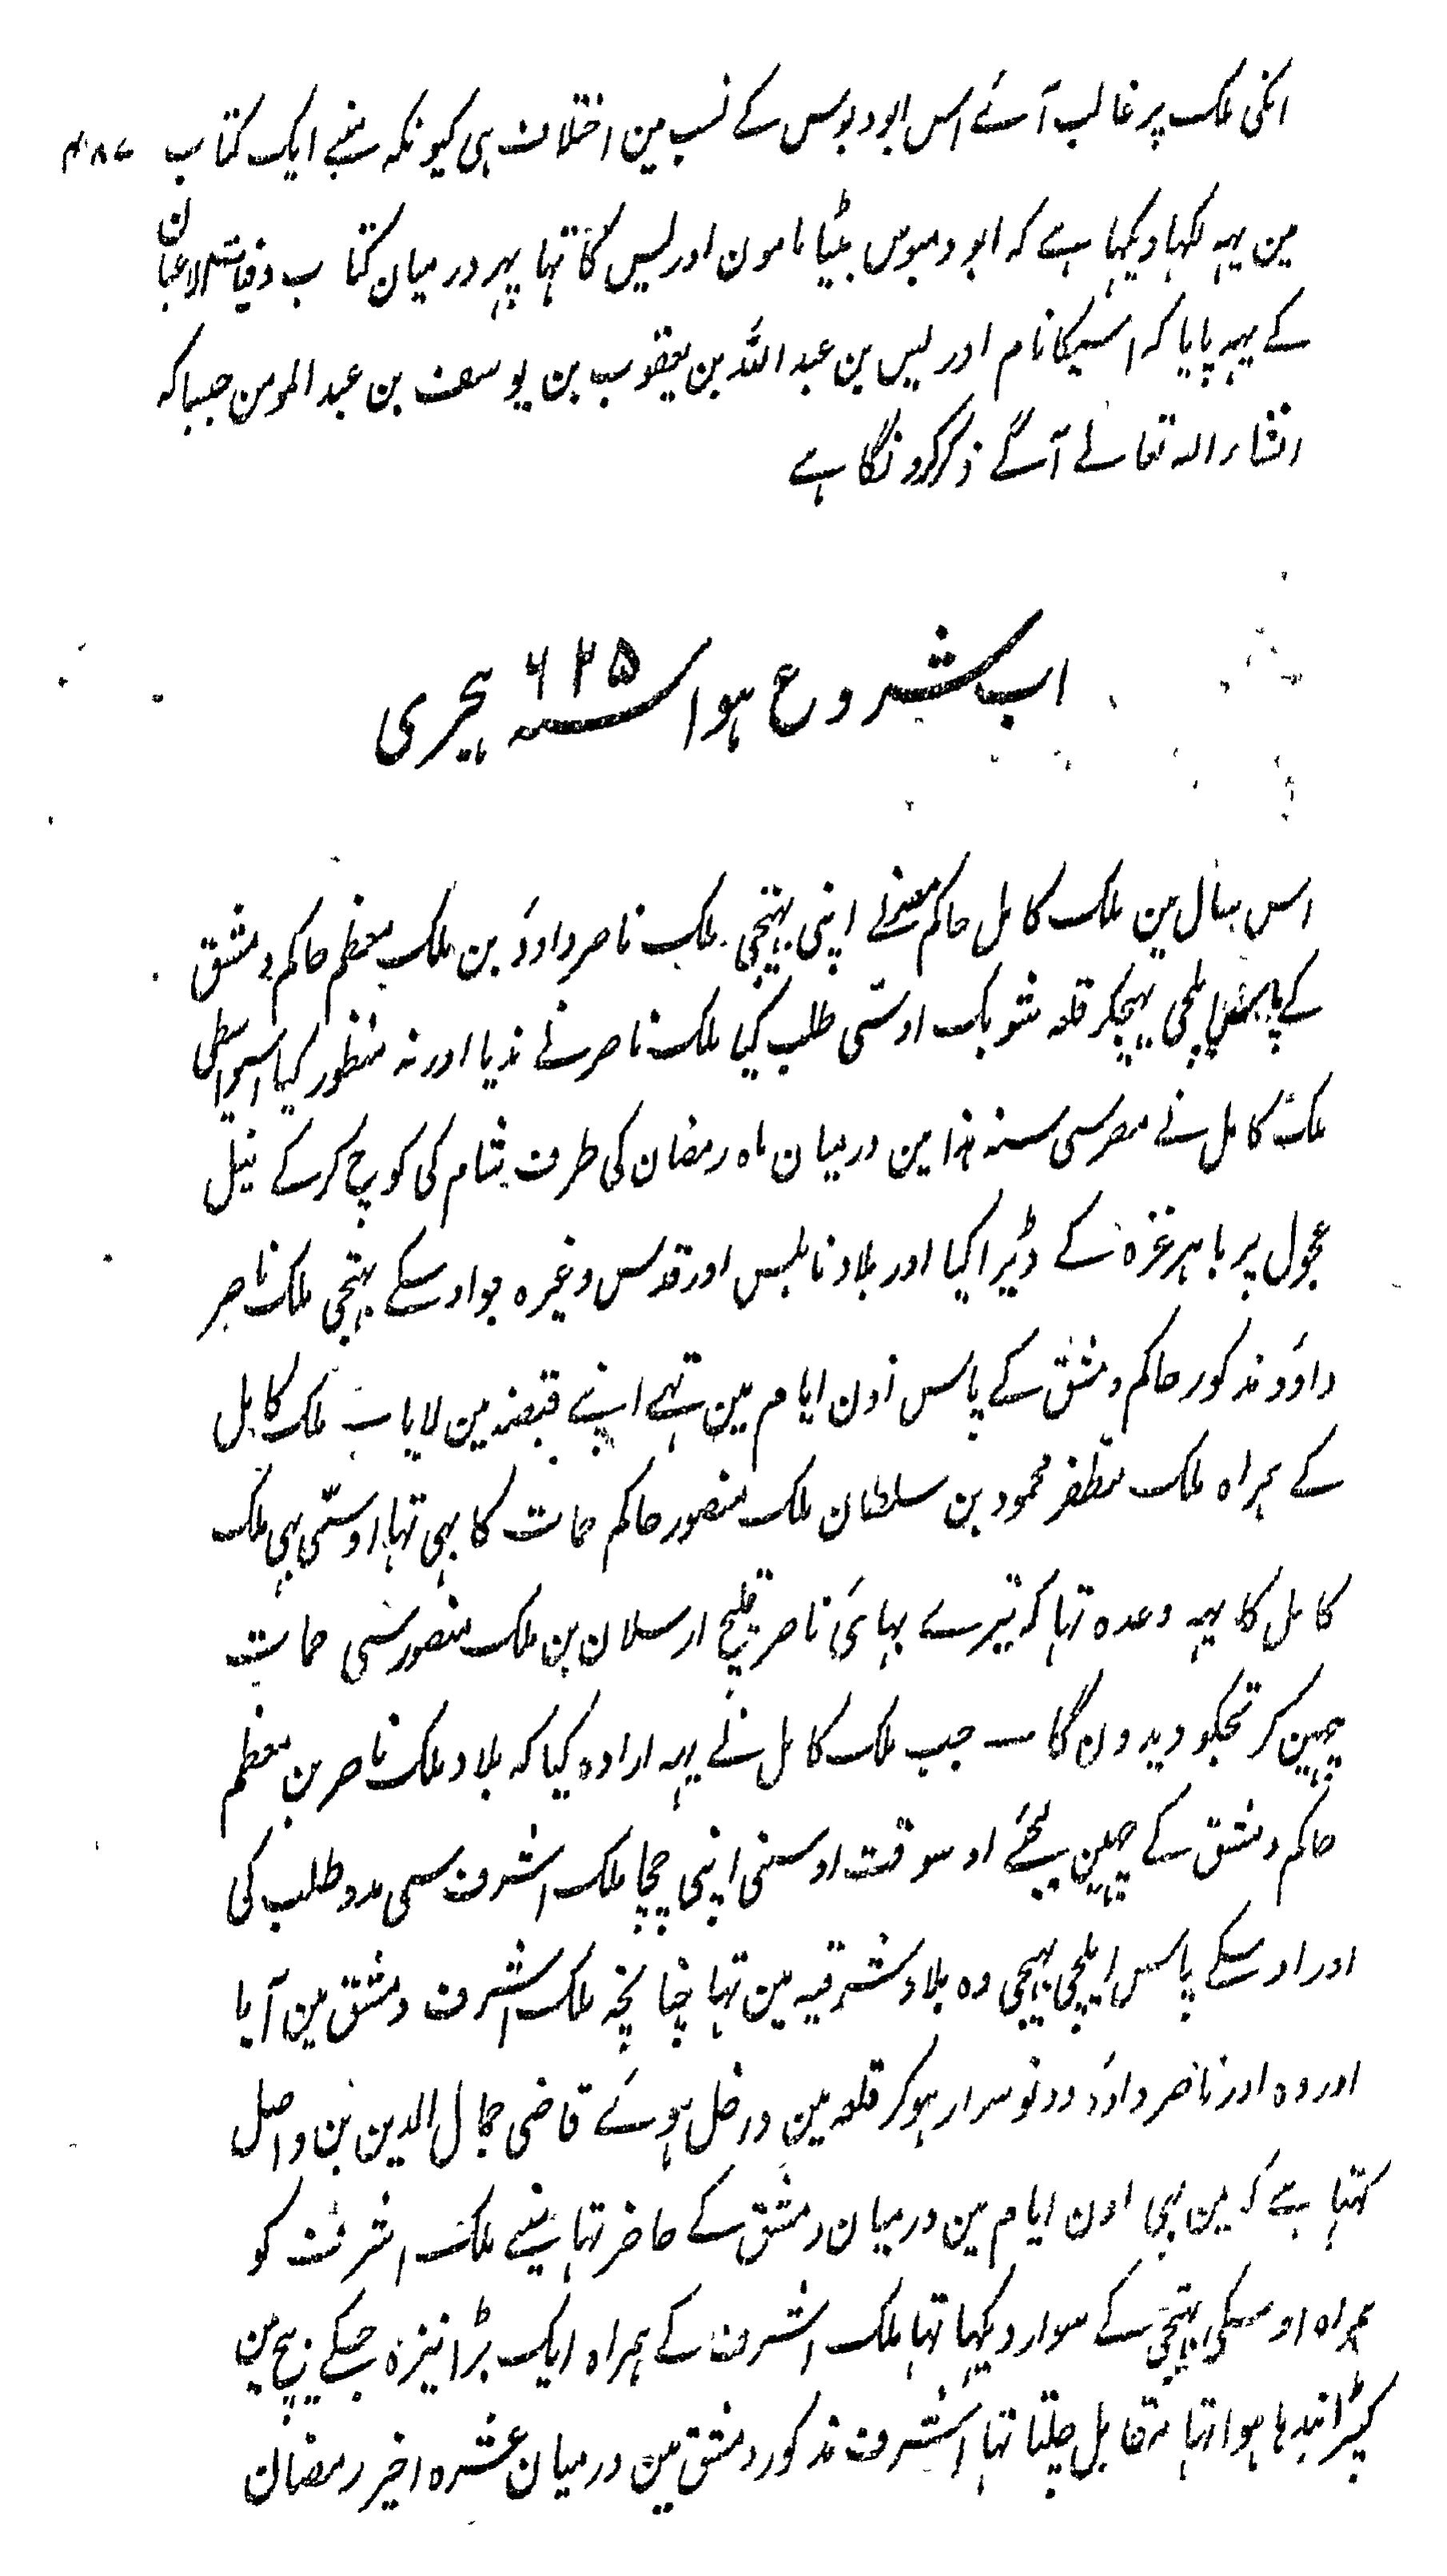 انکی ملک پر غالب آئے اس ابو دبوس کے نسب مین اختلاف ہی کیونکہ مینے ایک کتاب ۴۸۷
مین یہہ لکہا دیکہا ہے کہ ابو دبوس بیٹا مامون ادریس کا تہا پہر درمیان کتاب وفیات الاعیان
کے یہہ پایا کہ اسیکا نام ادریس بن عبد اللہ بن یعقوب بن یوسف بن عبد المومن جیساکہ
انشاء اللہ تعالے آگے ذکر کرونگا ہے
اب شروع ہوا سنہ ۶۲۵ ہجری
اس سال مین ملک کامل حاکم مصرنے اپنی بہتیجی ملک ناصر داود بن ملک معظم حاکم دمشق
کے پاس ایلچی بہیجکر قلعہ شوبک اوسّی طلب کیا ملک ناصر نے ندیا اور نہ منظور کیا اسواسطی
ملک کامل نے مصر سی سنہ ہذا مین درمیان ماہ رمضان کی طرف شام کی کوچ کرکے تیل
عجول پر باہر غزہ کے ڈیرا کیا اور بلاد نابلس اور قدس وغیرہ جو اوسکے بہتیجی ملک ناصر
داود مذکور حاکم دمشق کے پاس اون ایام مین تہے اپنے قبضہ مین لایا ۔ ملک کامل
کے ہمراہ ملک مظفر محمود بن سلطان ملک منصور حاکم حمات کا بہی تہا اوسّی بہی ملک
کامل کا یہہ وعدہ تہا کہ تیرے بہائی ناصر قلیج ارسلان بن ملک منصور سی حمات
چہین کر تجکو دیدون گا ۔ جب ملک کامل نے یہہ ارادہ کیا کہ بلاد ملک ناصر بن معظم
حاکم دمشق کے چہین لیئے اوسوقت اوسنی اپنی چچا ملک اشرف سی مدد طلب کی
اور اوسکے پاس ایلچی بہیجی وہ بلاد شرقیہ مین تہا چنانچہ ملک اشرف دمشق مین آیا
اور وہ اور ناصر داود دونو سوار ہوکر قلعہ مین داخل ہوئے قاضی جمال الدین بن واصل
کہتا ہے کہ مین بہی اون ایام مین درمیان دمشق کے حاضر تہا مینے ملک اشرف کو
ہمراہ اوسکی بہتیجی کے سوار دیکہا تہا ملک اشرف کے ہمراہ ایک بڑا نیزہ جسکے بیچ مین
کپڑا بندہا ہوا تہا مقابل چلتا تہا اشرف مذکور دمشق مین درمیان عشرہ اخیر رمضان